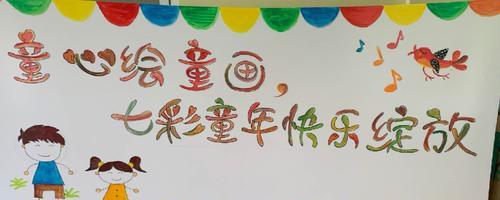 童心绘童画，
七彩童年快乐绽放